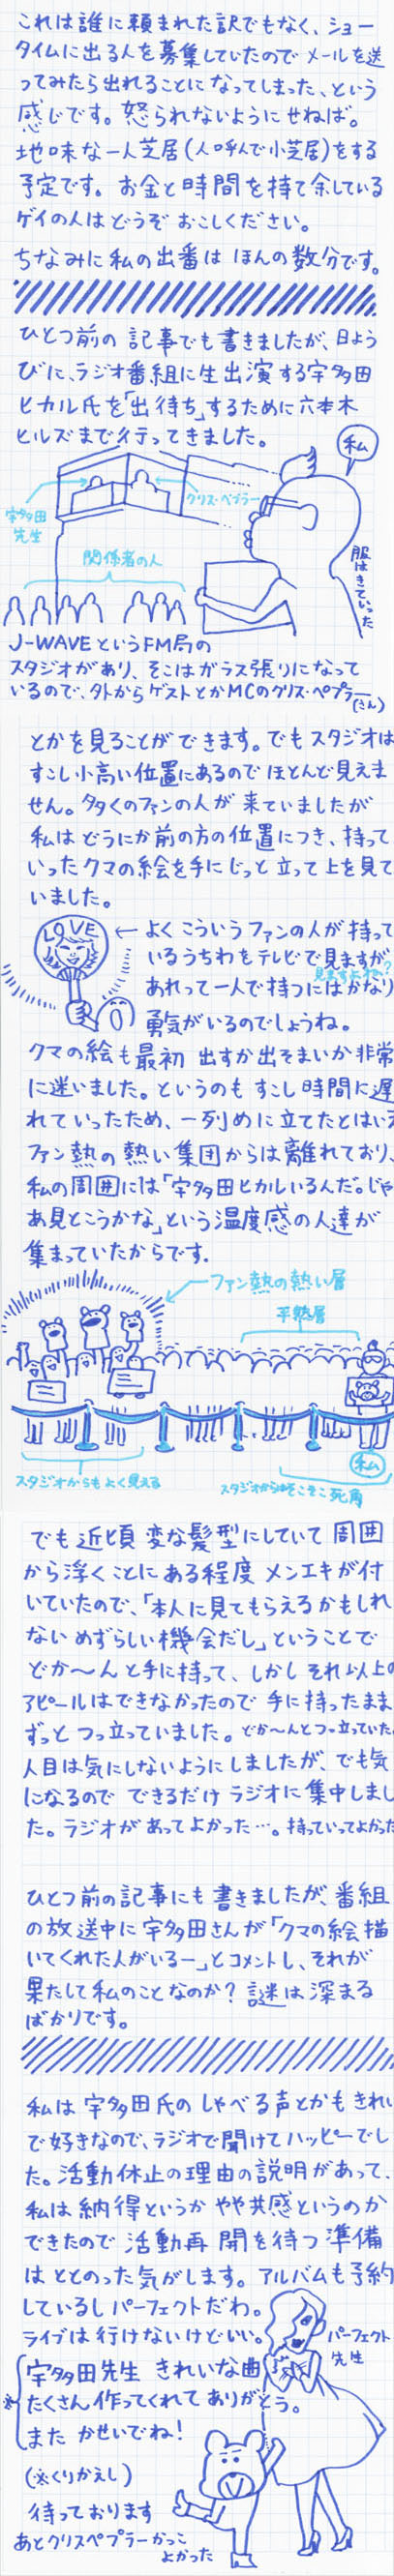 これは誰に頼まれた訳でもなく、ショー
タイムに出る人を募集していたのでメールを送
ってみたら出れることになってしまった、という
感じです。怒られないようにせねば。
地味な一人芝居(人呼んで小芝居)をする
予定です。お金と時間を持て余している
ゲイの人はどうぞおこしください。
ちなみに私の出番はほんの数分です。
ひとつ前の記事でも書きましたが、日よう
びに、ラジオ番組に生出演する宇多田
ヒカル氏を「出待ち」するために六本木
ヒルズまで行ってきました。
私
宇多田
先生
クリス・ペプラー
関係者の人
服はきていった
J-WAVEというFM局の
スタジオがあり、そこはガラス張りになって
いるので、外からゲストとかMCのクリス・ペプラー
(さん)
とかを見ることができます。でもスタジオは
すこし小高い位置にあるのでほとんど見えま
せん。多くのファンの人が来ていましたが
私はどうにか前の方の位置につき、持って
いったクマの絵を手にじっと立って上を見て
いました。
LOVE
←よくこういうファンの人が持って
いるうちわをテレビで見ますが
見ますよね?
あれって一人で持つにはかなり
勇気がいるのでしょうね。
クマの絵も最初出すか出そまいか非常
に迷いました。というのもすこし時間に遅
れていったため、一列めに立てたとはいえ
ファン熱の熱い集団からは離れており、
私の周囲には「宇多田ヒカルいるんだ。じゃ
あ見とこうかな」という温度感の人達が
集まっていたからです。
ファン熱の熱い層
平熱層
私
スタジオからもよく見える
スタジオからはそこそこ死角
でも近頃変な髪型にしていて周囲
から浮くことにある程度メンエキが付
いていたので、「本人に見てもらえるかもしれ
ないめずらしい機会だし」ということで
どか〜んと手に持って、しかしそれ以上の
アピールはできなかったので手に持ったまま
ずっとつっ立っていました。どか〜んとつっ立っていた。
人目は気にしないようにしましたが、でも気
になるのでできるだけラジオに集中しまし
た。ラジオがあってよかった…。持っていってよかった
ひとつ前の記事にも書きましたが、番組
の放送中に宇多田さんが「クマの絵描
いてくれた人がいるー」とコメントし、それが
果たして私のことなのか?謎は深まる
ばかりです。
私は宇多田氏のしゃべる声とかもきれい
で好きなので、ラジオで聞けてハッピーでし
た。活動休止の理由の説明があって、
私は納得というかやや共感というのか
できたので活動再開を待つ準備
はととのった気がします。アルバムも予約
しているしパーフェクトだわ。
ライブは行けないけどいい。
パーフェクト
先生
※
宇多田先生きれいな曲
たくさん作ってくれてありがとう。
またかせいでね!
(※くりかえし)
待っております
あとクリスペプラーかっこ
よかった